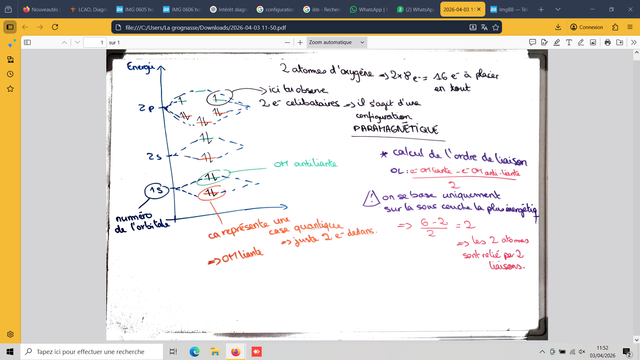 Nouveautés
LCAO, Diagr
IMG 0605 h
IMG 0606 h
Intérêt diagr
configuration
WhatsApp
(2) WhatsApp
2026-04-03 11-50.pdf
ImgBB —
file:///C:/Users/La grognasse/Downloads/2026-04-03 11-50.pdf
Connexion
1 sur 1
Zoom automatique
Energie
2 atomes d'oxygène ⇒ 2×8 e- = 16 e- à placer
en tout
ici tu observe
2 e- celibataires ⇒ il s'agit d'une
configuration
PARAMAGNÉTIQUE
2p
2s
1s
* calcul de l'ordre de liaison
OL := e- OM liante - e- OM anti-liante
2
OM antiliante
⚠ on se base uniquement
sur la sous couche la plus énergétiq
numéro
de l'orbitale
ça représente une
case quantique
⇒ juste 2 e- dedans.
⇒ OM liante
⇒ 6-2 = 2
2
⇒ les 2 atomes
sont relié par 2
liaisons.
Tapez ici pour effectuer une recherche
11:52
03/04/2026